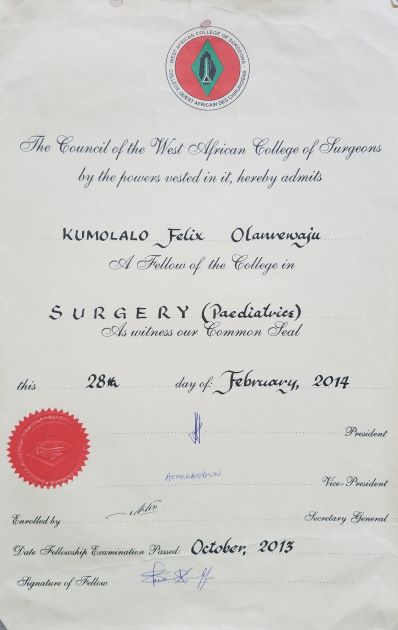 WEST AFRICAN COLLEGE OF SURGEONS
COLLEGE OUEST AFRICAIN DES CHIRURGIENS
The Council of the West African College of Surgeons
by the powers vested in it, hereby admits
KUMOLALO Felix Olanrewaju
A Fellow of the College in
SURGERY (Paediatrics)
As witness our Common Seal
this 28th day of: February, 2014
President
Vice-President
Enrolled by Secretary General
Date Fellowship Examination Passed: October, 2013
Signature of Fellow